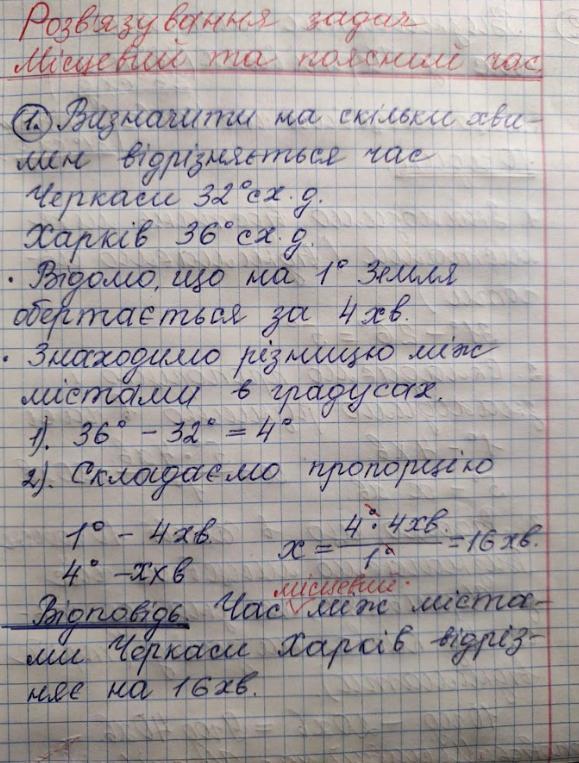 Розв'язування задач
Місцевий та поясний час
1. Визначити на скільки хви-
лин відрізняється час
Черкаси 32° сх. д.
Харків 36° сх. д.
· Відомо, що на 1° Земля
обертається за 4 хв.
· Знаходимо різницю між
містами в градусах.
1). 36° - 32° = 4°
2). Складаємо пропорцію
1° - 4 хв.
4° - х хв
х = 4° · 4 хв. / 1° = 16 хв.
місцевий.
Відповідь Час між міста-
ми Черкаси Харків відріз-
няє на 16 хв.